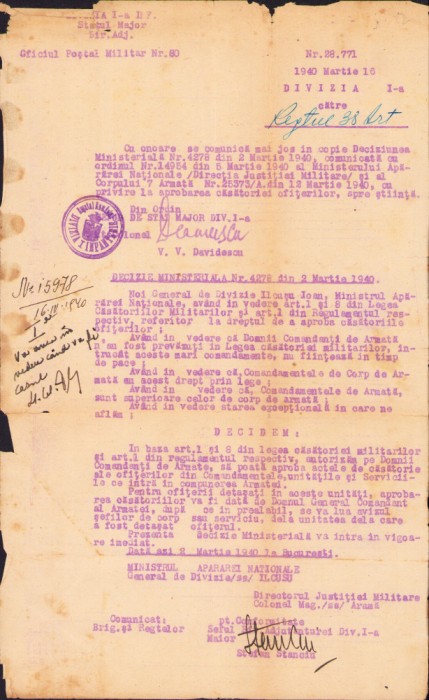 DIVIZIA I-a
Statul Major
Dir.Adj.
Oficiul Poștal Militar Nr.80
Nr.28.771
1940 Martie 16
DIVIZIA I-a
către
Regtul 38 Art
Cu onoare se comunică mai jos în copie Deciziunea
Ministerială Nr.4278 din 2 Martie 1940, comunicată cu
ordinul Nr.14954 din 5 Martie 1940 al Ministerului Apă
rărei Naționale /Direcția Justiției Militare/ și al
Corpului 7 Armată Nr.25373/A.din 12 Martie 1940, cu
privire la aprobarea căsătoriei ofițerilor, spre știință.
Din Ordin
DE STAT MAJOR DIV.I-a
lonel
V. V. Davidescu
DECIZIE MINISTERIALA Nr.4278 din 2 Martie 1940.
Nr 15978
16.IV.1940
Noi General de Divizie Ilcușu Ioan, Ministrul Apă
rărei Naționale, având în vedere art.1 și 8 din Legea
Căsătoriilor Militarilor și art.1 din Regulamentul res-
pectiv, referitor la dreptul de a aproba căsătoriile
ofițerilor ;
Având în vedere că Domnii Comandanți de Armată
n'au fost prevăzuți în Legea căsătoriei militarilor, în-
trucât aceste mari comandamente, nu ființează în timp
de pace
Având în vedere că, Comandamentele de Corp de Ar-
mată au acest drept prin lege ;
Având în vedere că, Comandamentele de Armată,
sunt superioare celor de corp de armată ;
Având în vedere starea excepțională în care ne
aflăm ;
DECIDEM :
In baza art.1 și 8 din legea căsătoriei militarilor
și art.1 din regulamentul respectiv, autorizăm pe Domnii
Comandanți de Armate, să poată aproba actele de căsători
ale ofițerilor din Comandamentele,unitățile și Servicii-
le ce intră în compunerea Armatei.
Pentru ofițerii detașați în aceste unități, aproba-
rea căsătoriilor va fi dată de Domnul General Comandant
al Armatei, după ce în prealabil, se va lua avizul
șefilor de corp sau serviciu, dela unitatea dela care
a fost detașat ofițerul.
Prezenta Decizie Ministerială va intra în vigoa-
re imediat.
Dată azi 2 Martie 1940 la București.
MINISTRUL APARAREI NATIONALE
General de Divizie/ss/ ILCUSU
Directorul Justiției Militare
Colonel Mag./ss/ Aramă
Comunicat:
Brig.și Regtelor
pt.Conformitate
Șeful Adjutanturei Div.I-a
Maior
Stefan Stanciu